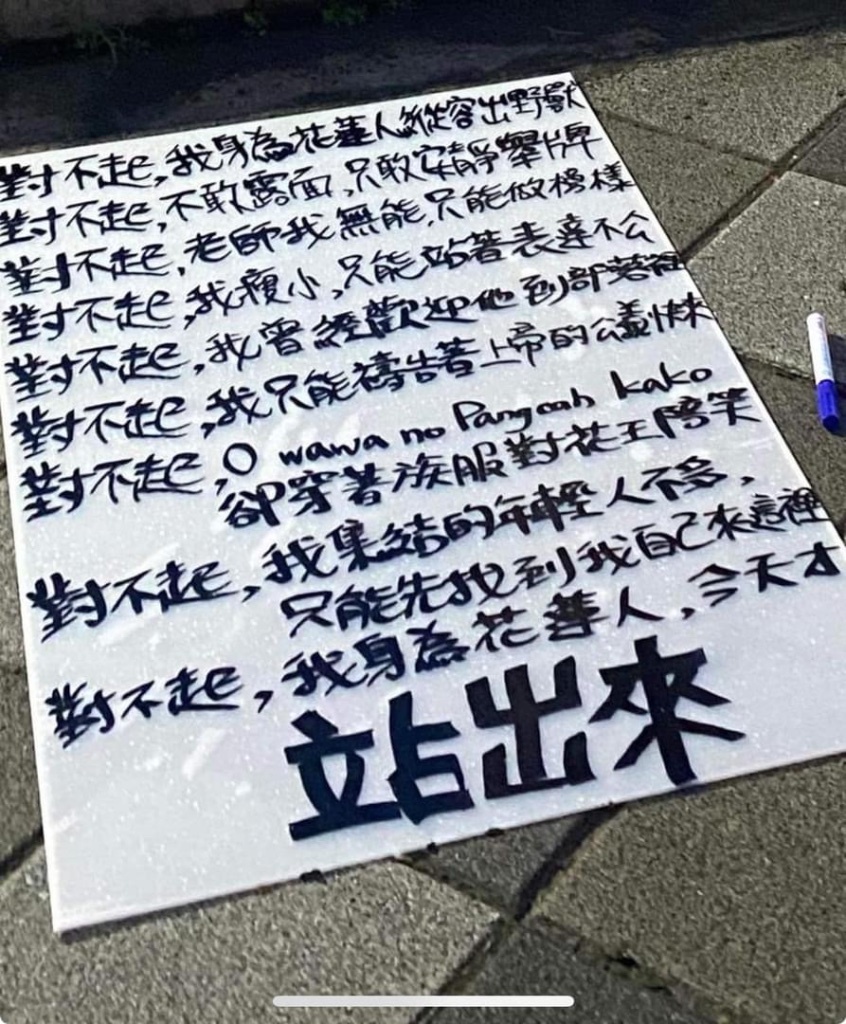 對不起,我身為花蓮人縱容出野獸
對不起,不敢露面,只敢安靜舉牌
對不起,老師我無能,只能做榜樣
對不起,我瘦小,只能站著表達不公
對不起,我曾經歡迎他到部落裡
對不起,我只能禱告著上帝的公義快來
對不起,O wawa no Pangcah kako
卻穿著族服對花王陪笑
對不起,我集結的年輕人不多,
只能先找到我自己來這裡
對不起,我身為花蓮人,今天才
站出來